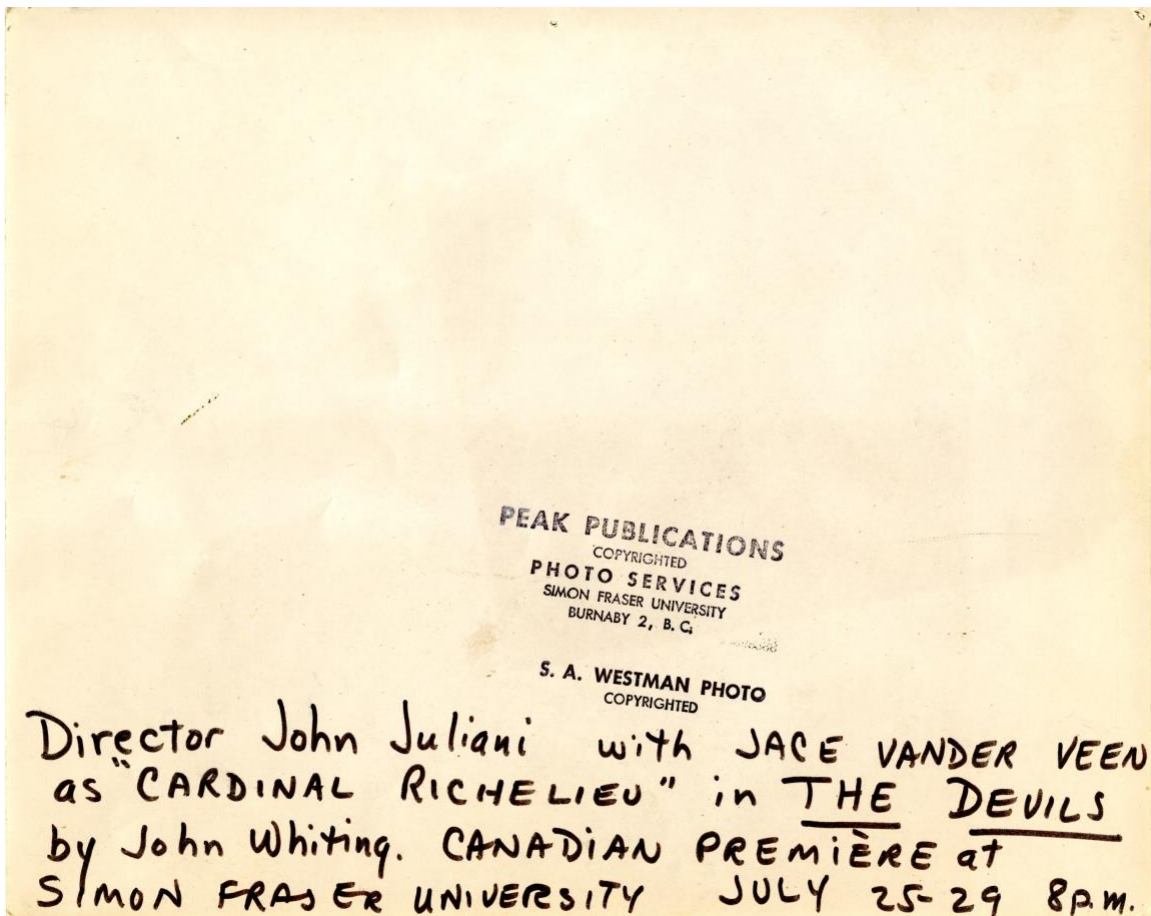 PEAK PUBLICATIONS
COPYRIGHTED
PHOTO SERVICES
SIMON FRASER UNIVERSITY
BURNABY 2, B. C.
S. A. WESTMAN PHOTO
COPYRIGHTED
Director John Juliani with JACE VANDER VEEN
as "CARDINAL RICHELIEU" in THE DEVILS
by John Whiting. CANADIAN PREMIÈRE at
SIMON FRASER UNIVERSITY JULY 25-29 8p.m.